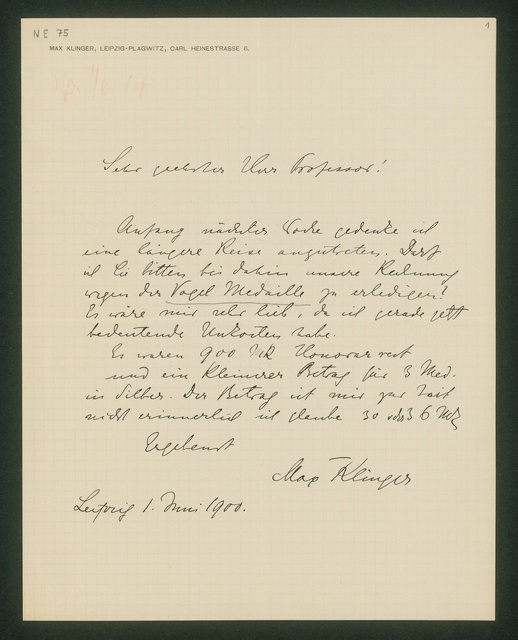 NE 75
1
MAX KLINGER, LEIPZIG-PLAGWITZ, CARL HEINESTRASSE 6.
Sehr geehrter Herr Professor!
Anfang nächster Woche gedenke ich
eine längere Reise anzutreten. Darf
ich Sie bitten bis dahin unsere Rechnung
wegen der Vogel Medaille zu erledigen?
Es wäre mir sehr lieb, da ich gerade jetzt
bedeutende Unkosten habe.
Es waren 900 Mk Honorar rest
und ein kleinerer Betrag für 3 Med.
in Silber. Der Betrag ist mir zur Zeit
nicht erinnerlich ich glaube 30 oder 36 Mk
Ergebenst
Max Klinger
Leipzig 1. Juni 1900.